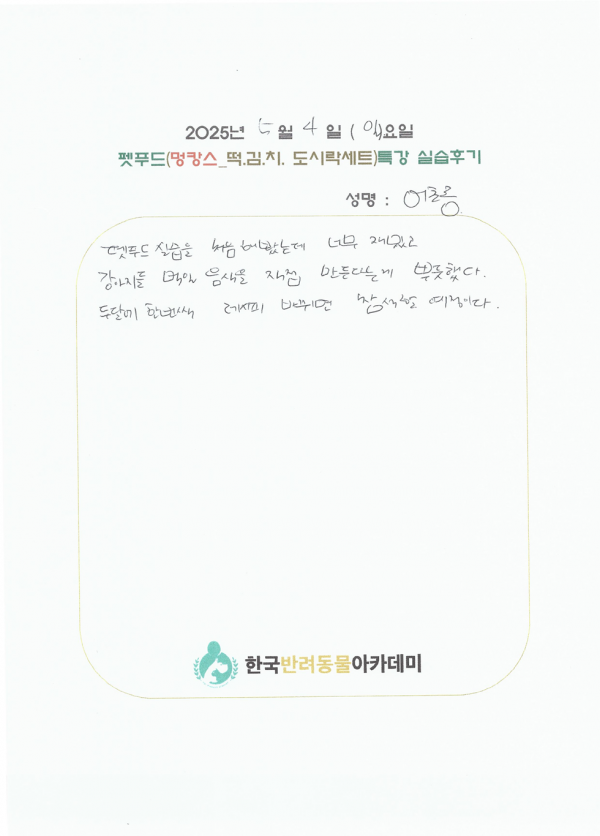 2025년 5월 4일 (일)요일
펫푸드(멍캉스_떡.김.치. 도시락세트)특강 실습후기
성명 :
펫푸드 실습을 처음 해봤는데 너무 재밌고
강아지들 먹일 음식을 직접 만든다는게 뿌듯했다.
두달에 한번씩 레시피 바뀌면 참석할 예정이다.
한국반려동물아카데미